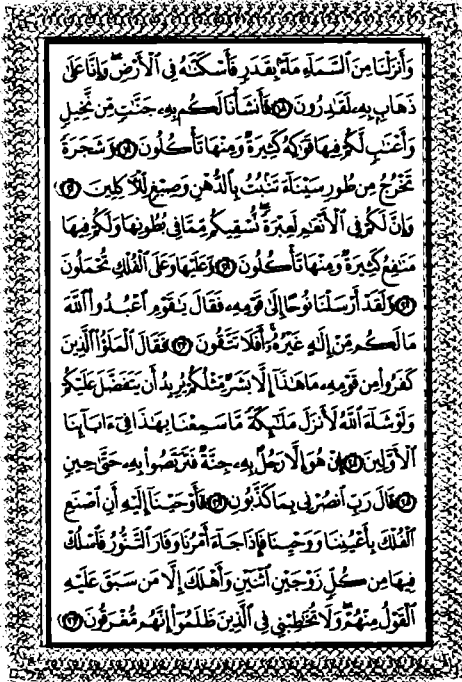 وَأَنزَلْنَا مِنَ ٱلسَّمَآءِ مَآءًۢ بِقَدَرٍ فَأَسْكَنَّٰهُ فِى ٱلْأَرْضِ ۖ وَإِنَّا عَلَىٰ
ذَهَابٍۭ بِهِۦ لَقَٰدِرُونَ ۝١٨ فَأَنشَأْنَا لَكُم بِهِۦ جَنَّٰتٍ مِّن نَّخِيلٍ
وَأَعْنَٰبٍ لَّكُمْ فِيهَا فَوَٰكِهُ كَثِيرَةٌ وَمِنْهَا تَأْكُلُونَ ۝١٩ وَشَجَرَةً
تَخْرُجُ مِن طُورِ سَيْنَآءَ تَنۢبُتُ بِٱلدُّهْنِ وَصِبْغٍ لِّلْءَاكِلِينَ ۝٢٠
وَإِنَّ لَكُمْ فِى ٱلْأَنْعَٰمِ لَعِبْرَةً ۖ نُّسْقِيكُم مِّمَّا فِى بُطُونِهَا وَلَكُمْ فِيهَا
مَنَٰفِعُ كَثِيرَةٌ وَمِنْهَا تَأْكُلُونَ ۝٢١ وَعَلَيْهَا وَعَلَى ٱلْفُلْكِ تُحْمَلُونَ
۝٢٢ وَلَقَدْ أَرْسَلْنَا نُوحًا إِلَىٰ قَوْمِهِۦ فَقَالَ يَٰقَوْمِ ٱعْبُدُوا۟ ٱللَّهَ
مَا لَكُم مِّنْ إِلَٰهٍ غَيْرُهُۥٓ ۖ أَفَلَا تَتَّقُونَ ۝٢٣ فَقَالَ ٱلْمَلَؤُا۟ ٱلَّذِينَ
كَفَرُوا۟ مِن قَوْمِهِۦ مَا هَٰذَآ إِلَّا بَشَرٌ مِّثْلُكُمْ يُرِيدُ أَن يَتَفَضَّلَ عَلَيْكُمْ
وَلَوْ شَآءَ ٱللَّهُ لَأَنزَلَ مَلَٰٓئِكَةً مَّا سَمِعْنَا بِهَٰذَا فِىٓ ءَابَآئِنَا
ٱلْأَوَّلِينَ ۝٢٤ إِنْ هُوَ إِلَّا رَجُلٌۢ بِهِۦ جِنَّةٌ فَتَرَبَّصُوا۟ بِهِۦ حَتَّىٰ حِينٍ
۝٢٥ قَالَ رَبِّ ٱنصُرْنِى بِمَا كَذَّبُونِ ۝٢٦ فَأَوْحَيْنَآ إِلَيْهِ أَنِ ٱصْنَعِ
ٱلْفُلْكَ بِأَعْيُنِنَا وَوَحْيِنَا فَإِذَا جَآءَ أَمْرُنَا وَفَارَ ٱلتَّنُّورُ ۙ فَٱسْلُكْ
فِيهَا مِن كُلٍّ زَوْجَيْنِ ٱثْنَيْنِ وَأَهْلَكَ إِلَّا مَن سَبَقَ عَلَيْهِ
ٱلْقَوْلُ مِنْهُمْ ۖ وَلَا تُخَٰطِبْنِى فِى ٱلَّذِينَ ظَلَمُوٓا۟ ۖ إِنَّهُم مُّغْرَقُونَ ۝٢٧